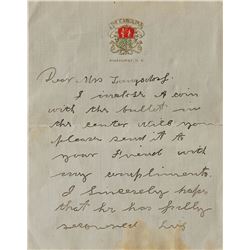 THE CAROLINA
PINEHURST, N. C.
Dear Mrs
I inclose A coin
with the bullet in
the center will you
please send it to
your Friend with
my compliments.
I Sincerely hope
that he has fully
recovered his